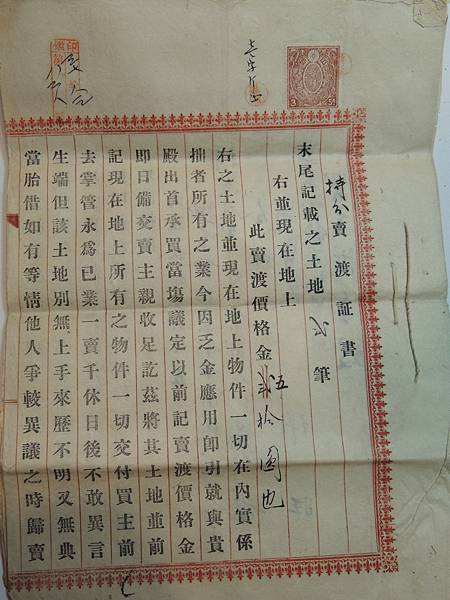 持分賣渡証書
末尾記載之土地弍筆
右並現在地上
此賣渡價格金弍拾五圓也
右之土地並現在地上物件一切在內實係
拙者所有之業今因乏金應用即引就與貴
殿出首承買當塲議定以前記賣渡價格金
即日備交賣主親收足訖茲將其土地並前
記現在地上所有之物件一切交付買主前
去掌管永爲己業一賣千休日後不敢異言
生端但該土地別無上手來歷不明叉無典
當胎借如有等情他人爭較異議之時歸賣